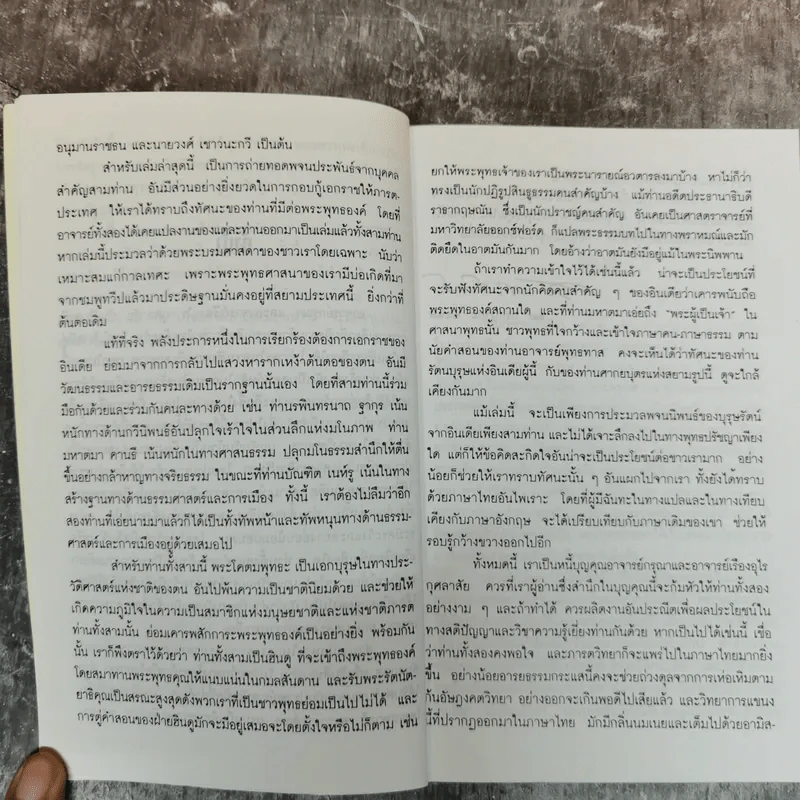 อนุมานราชธน และนายวงศ์ เชาวนะกวี เป็นต้น
สำหรับเล่มล่าสุดนี้ เป็นการถ่ายทอดพจนประพันธ์จากบุคคล
สำคัญสามท่าน อันมีส่วนอย่างยิ่งยวดในการกอบกู้เอกราชให้ภารต-
ประเทศ ให้เราได้ทราบถึงทัศนะของท่านที่มีต่อพระพุทธองค์ โดยที่
อาจารย์ทั้งสองได้เคยแปลงานของแต่ละท่านออกมาเป็นเล่มแล้วทั้งสามท่าน
หากเล่มนี้ประมวลว่าด้วยพระบรมศาสดาของชาวเราโดยเฉพาะ นับว่า
เหมาะสมแก่กาลเทศะ เพราะพระพุทธศาสนาของเรามีบ่อเกิดที่มา
จากชมพูทวีปแล้วมาประดิษฐานมั่นคงอยู่ที่สยามประเทศนี้ ยิ่งกว่าที่
ต้นตอเดิม
แท้ที่จริง พลังประการหนึ่งในการเรียกร้องต้องการเอกราชของ
อินเดีย ย่อมมาจากการกลับไปแสวงหารากเหง้าต้นตอของตน อันมี
วัฒนธรรมและอารยธรรมเดิมเป็นรากฐานนั้นเอง โดยที่สามท่านนี้ร่วม
มือกันด้วยและร่วมกันคนละทางด้วย เช่น ท่านรพินทรนาถ ฐากูร เน้น
หนักทางด้านกวีนิพนธ์อันปลุกใจเร้าใจในส่วนลึกแห่งมโนภาพ ท่าน
มหาตมา คานธี เน้นหนักในทางศาสนธรรม ปลุกมโนธรรมสำนึกให้ตื่น
ขึ้นอย่างกล้าหาญทางจริยธรรม ในขณะที่ท่านบัณฑิต เนห์รู เน้นในทาง
สร้างฐานทางด้านธรรมศาสตร์และการเมือง ทั้งนี้ เราต้องไม่ลืมว่าอีก
สองท่านที่เอ่ยนามมาแล้วก็ได้เป็นทั้งทัพหน้าและทัพหนุนทางด้านธรรม-
ศาสตร์และการเมืองอยู่ด้วยเสมอไป
สำหรับท่านทั้งสามนี้ พระโคตมพุทธะ เป็นเอกบุรุษในทางประ-
วัติศาสตร์แห่งชาติของตน อันไปพ้นความเป็นชาตินิยมด้วย และช่วยให้
เกิดความภูมิใจในความเป็นสมาชิกแห่งมนุษยชาติและแห่งชาติภารต
ท่านทั้งสามนั้น ย่อมเคารพสักการะพระพุทธองค์เป็นอย่างยิ่ง พร้อมกัน
นั้น เราก็พึงตราไว้ด้วยว่า ท่านทั้งสามเป็นฮินดู ที่จะเข้าถึงพระพุทธองค์
โดยสมาทานพระพุทธคุณให้แนบแน่นในกมลสันดาน และรับพระรัตนัต-
ยาธิคุณเป็นสรณะสูงสุดดังพวกเราที่เป็นชาวพุทธย่อมเป็นไปไม่ได้ และ
การตู่คำสอนของฝ่ายฮินดูมักจะมีอยู่เสมอจะโดยตั้งใจหรือไม่ก็ตาม เช่น
ยกให้พระพุทธเจ้าของเราเป็นพระนารายณ์อวตารลงมาบ้าง หาไม่ก็ว่า
ทรงเป็นนักปฏิรูปสินธูธรรมคนสำคัญบ้าง แม้ท่านอดีตประธานาธิบดี
ราธากฤษณัน ซึ่งเป็นนักปราชญ์คนสำคัญ อันเคยเป็นศาสตราจารย์ที่
มหาวิทยาลัยออกซ์ฟอร์ด ก็แปลพระธรรมบทไปในทางพราหมณ์และมัก
ติดยึดในอาตมันกันมาก โดยอ้างว่าอาตมันยังมีอยู่แม้ในพระนิพพาน
ถ้าเราทำความเข้าใจไว้ได้เช่นนี้แล้ว น่าจะเป็นประโยชน์ที่
จะรับฟังทัศนะจากนักคิดคนสำคัญ ๆ ของอินเดียว่าเคารพนับถือ
พระพุทธองค์สถานใด และที่ท่านมหาตมาเอ่ยถึง “พระผู้เป็นเจ้า” ใน
ศาสนาพุทธนั้น ชาวพุทธที่ใจกว้างและเข้าใจภาษาคน-ภาษาธรรม ตาม
นัยคำสอนของท่านอาจารย์พุทธทาส คงจะเห็นได้ว่าทัศนะของท่าน
รัตนบุรุษแห่งอินเดียผู้นี้ กับของท่านศากยบุตรแห่งสยามรูปนี้ ดูจะใกล้
เคียงกันมาก
แม้เล่มนี้ จะเป็นเพียงการประมวลพจนนิพนธ์ของบุรุษรัตน์
จากอินเดียเพียงสามท่าน และไม่ได้เจาะลึกลงไปในทางพุทธปรัชญาเพียง
ใด แต่ก็ให้ข้อคิดสะกิดใจอันน่าจะเป็นประโยชน์ต่อชาวเรามาก อย่าง
น้อยก็ช่วยให้เราทราบทัศนะนั้น ๆ อันแผกไปจากเรา ทั้งยังได้ทราบ
ด้วยภาษาไทยอันไพเราะ โดยที่ผู้มีฉันทะในทางแปลและในทางเทียบ
เคียงกับภาษาอังกฤษ จะได้เปรียบเทียบกับภาษาเดิมของเขา ช่วยให้
รอบรู้กว้างขวางออกไปอีก
ทั้งหมดนี้ เราเป็นหนี้บุญคุณอาจารย์กรุณาและอาจารย์เรืองอุไร
กุศลาสัย ควรที่ผู้อ่านซึ่งสำนึกในบุญคุณนี้จะก้มหัวให้ท่านทั้งสอง
อย่างงาม ๆ และถ้าทำได้ ควรผลิตงานอันประณีตเพื่อผลประโยชน์ใน
ทางสติปัญญาและวิชาความรู้เยี่ยงท่านกันด้วย หากเป็นไปได้เช่นนี้ เชื่อ
ว่าท่านทั้งสองคงพอใจ และภารตวิทยาก็จะแพร่ไปในภาษาไทยมากยิ่ง
ขึ้น อย่างน้อยอารยธรรมกระแสนี้คงจะช่วยถ่วงดุลจากการเห่อเหิมตาม
กันอัษฎงคตวิทยา อย่างออกจะเกินพอดีไปเสียแล้ว และวิทยาการแขนง
นี้ที่ปรากฏออกมาในภาษาไทย มักมีกลิ่นนมเนยและเต็มไปด้วยอามิส-